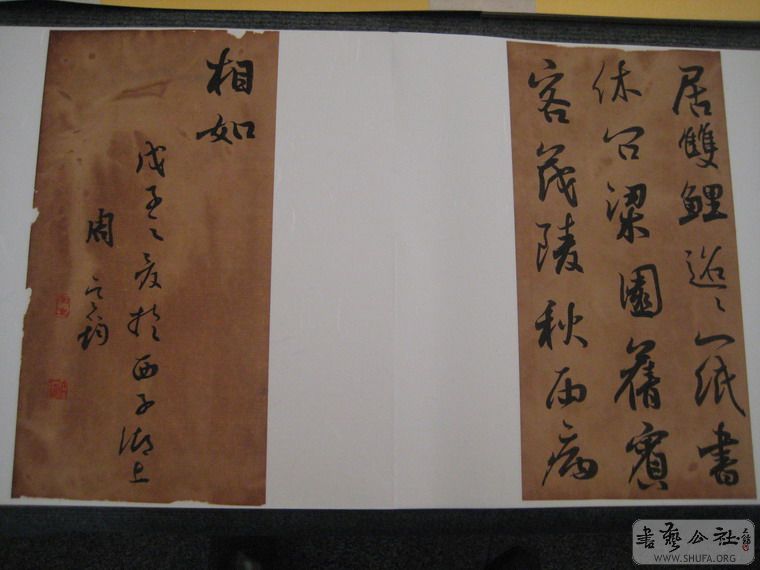 居雙鯉迢〻一紙書
休問梁園舊賓
客茂陵秋雨病
相如
戊子之夏於西子湖上
周
書藝公社
WWW.SHUFA.ORG